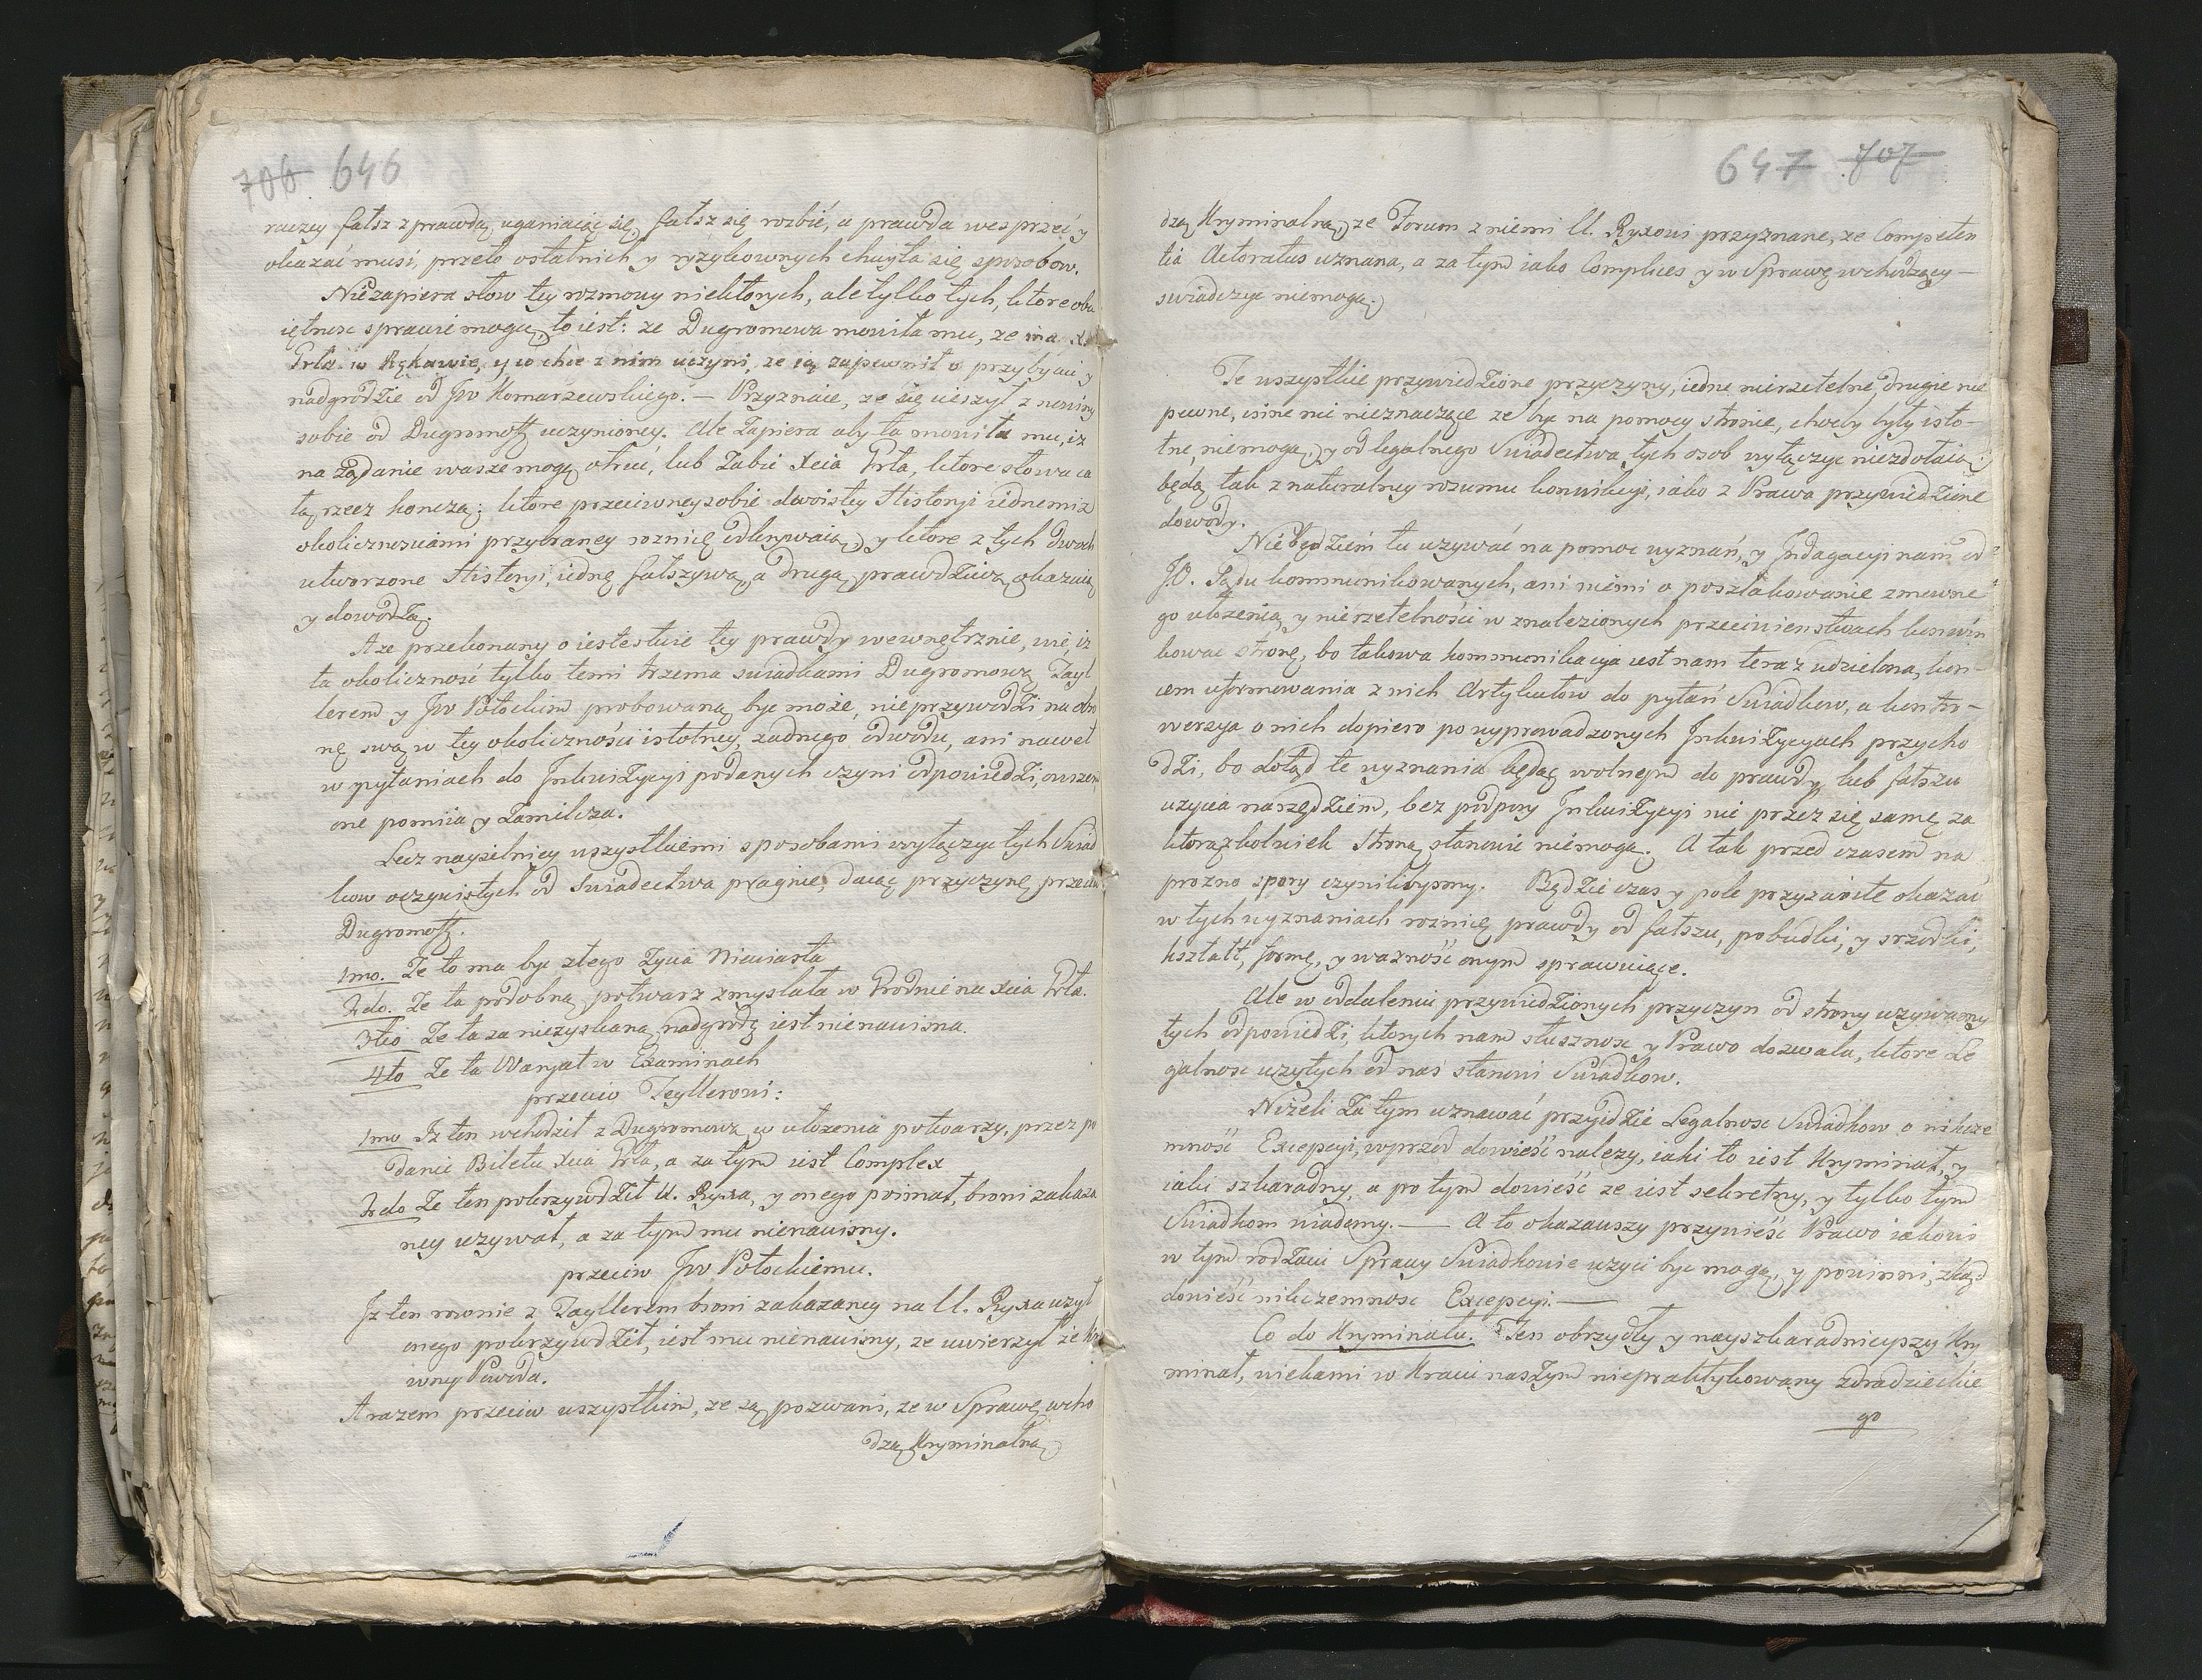 706 646
raczey fałsz z prawdą uganiaiąc się, fałsz się rozbić, a prawda wesprzeć y
okazać musi, przeto ostatnich y ryzykownych chwyta się sposobow.
Niezapiera słow tey rozmowy niektorych, ale tylko tych, ktore obo
iętnosc sprawie mogą, to iest: ze Dugromowa mowiła mu, ze ma X.
Grła w Rękawie, y co chce z nim uczyni, ze ią zapewnił o przybyciu y
nadgrodzie od Jw Komarzewskiego. — Przyznaie, ze się cieszył z nowiny
sobie od Dugromotz uczynioney. Ale Zapiera aby ta mowiła mu, iz
na żądanie wasze mogę otruć, lub Zabić Xcia Grła, ktore słowa ca
łą rzecz konczą; ktore przeciwney sobie dwoistey Historyi iednemiz
okolicznosciami przybraney roznicę odkrywaią, y ktore z tych dwoch
utworzone Historyi, iednę fałszywą, a drugą prawdziwą okazuią
y dowodzą.
A ze przekonany o iestestwie tey prawdy wewnętrznie, wie, iz
ta okoliczność tylko temi trzema swiadkami Dugromową Tayl
lerem y Jw Potockim probowaną byc może, nie przywodzi na obro
nę swą w tey okoliczności istotney, zadnego dowodu, ani nawet
w pytaniach do Inkwizycyi podanych czyni odpowiedzi, owszem
one pomiia y Zamilcza.
Lecz naysilniey wszystkiemi sposobami wyłączyc tych Swiad
kow oczywistych od Swiadectwa pragnie, daiąc przyczynę przeciw
Dugromotz.
1mo. Ze to ma byc złego Zycia Niewiasta
2do. Ze ta podobną potwarz zmyslała w Grodnie na Xcia Grła.
3tio Ze ta za niezyskaną nadgrodę iest nienawisna
4to Ze ta Waryat w Examinach
przeciw Teylleroni:
1mo Iz ten wchodził z Dugromową w ułożenia potwarzy, przez po
danie Biletu Xcia Grła, a za tym iest Complex
2do Ze ten pokrzywdził U. Ryxa, y onego poimał, broni zakaza
ney uzywał, a za tym mu nienawisny.
przeciw Jw Potockiemu.
Iz ten rownie z Tayllerem broni zakazaney na U. Ryxa uzył
onego pokrzywdził, iest mu nienawisny, ze uwierzył że
winy Powoda.
A razem przeciw wszystkim, ze są pozwani, ze w Sprawę wcho
dzą Kryminalną
647 707
dzą Kryminalną, ze Forum z niemi U. Ryxowi przyznane, ze Competen
tia Actoratus uznana, a za tym iako Complices y w Sprawę wchodzący —
swiadczyc niemogą.
Te wszystkie przywiedzione przyczyny, iedne nierzetelne, drugie nie
pewne, inne nic nieznaczące ze być na pomocy stronie, choćby były isto-
tne niemogą, y od legalnego Swiadectwa tych osob wyłączyc niezdołaią;
będą tak z naturalney rozumu konwikcyi, iako z Prawa przywiedzione
dowody.
Niebędziem tu uzywać na pomoc wyznań, y Indagacyi nam od
J.O. Sądu kommunikowanych, ani niemi o poszlakowanie zmowne
go ułożenia y nierzetelności w znalezionych przeciwienstwach konwin
kować stronę, bo takowa kommunikacya iest nam teraz udzielona, kon-
cem uformowania z nich Artykułow do pytań Swiadkow, a kontro-
wersya o nich dopiero po wyprowadzonych Inkwizycyach przycho
dzi, bo dotąd te wyznania będąc wolnym do prawdy lub fałszu
uzycia narzędziem, bez podpory Inkwizycyi nic przez się samę za
ktorązkolwiek Stroną stanowić niemogą. A tak przed czasem na
prozno spory czynilibysmy. Będzie czas y pole przyzwoite okazać
w tych wyznaniach roznicę prawdy od fałszu, pobudki, y srzodki,
kształt, formę, y ważność onym sprawuiące.
Ale w oddaleniu przywiedzionych przyczyn od strony uzywamy
tych odpowiedzi, ktorych nam słusznosc y Prawo dozwala, ktore Le
galnosc uzytych od nas stanowi Swiadkow.
Niżeli Za tym uznawać przyidzie Legalnosc Swiadkow o nikcze
mność Excepcyi, wprzod dowieść nalezy, iaki to iest Kryminał, y
iak szkaradny, a po tym dowieść ze iest sekretny, y tylko tym
Swiadkom wiadomy. — A to okazawszy przynieść Prawo iakowi
w tym rodzaiu Sprawy Swiadkowie uzyci byc mogą, y powinni, zkąd
dowieść nikczemnosc Excepcyi. —
Co do Kryminału. Ten obrzydły y nayszkaradnieyszy Kry
minał, wiekami w Kraiu naszym niepraktykowany Zdradzieckie
go